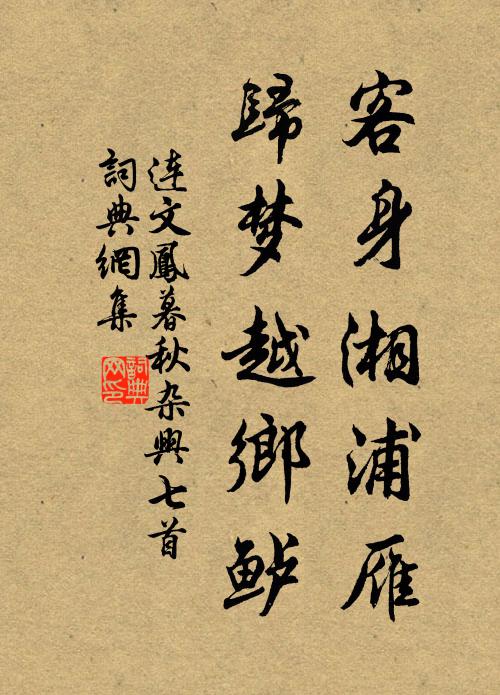 客身湘浦雁
歸梦越鄉鲈
连文鳳暮秋杂興七首
詞典網集
詞典网印